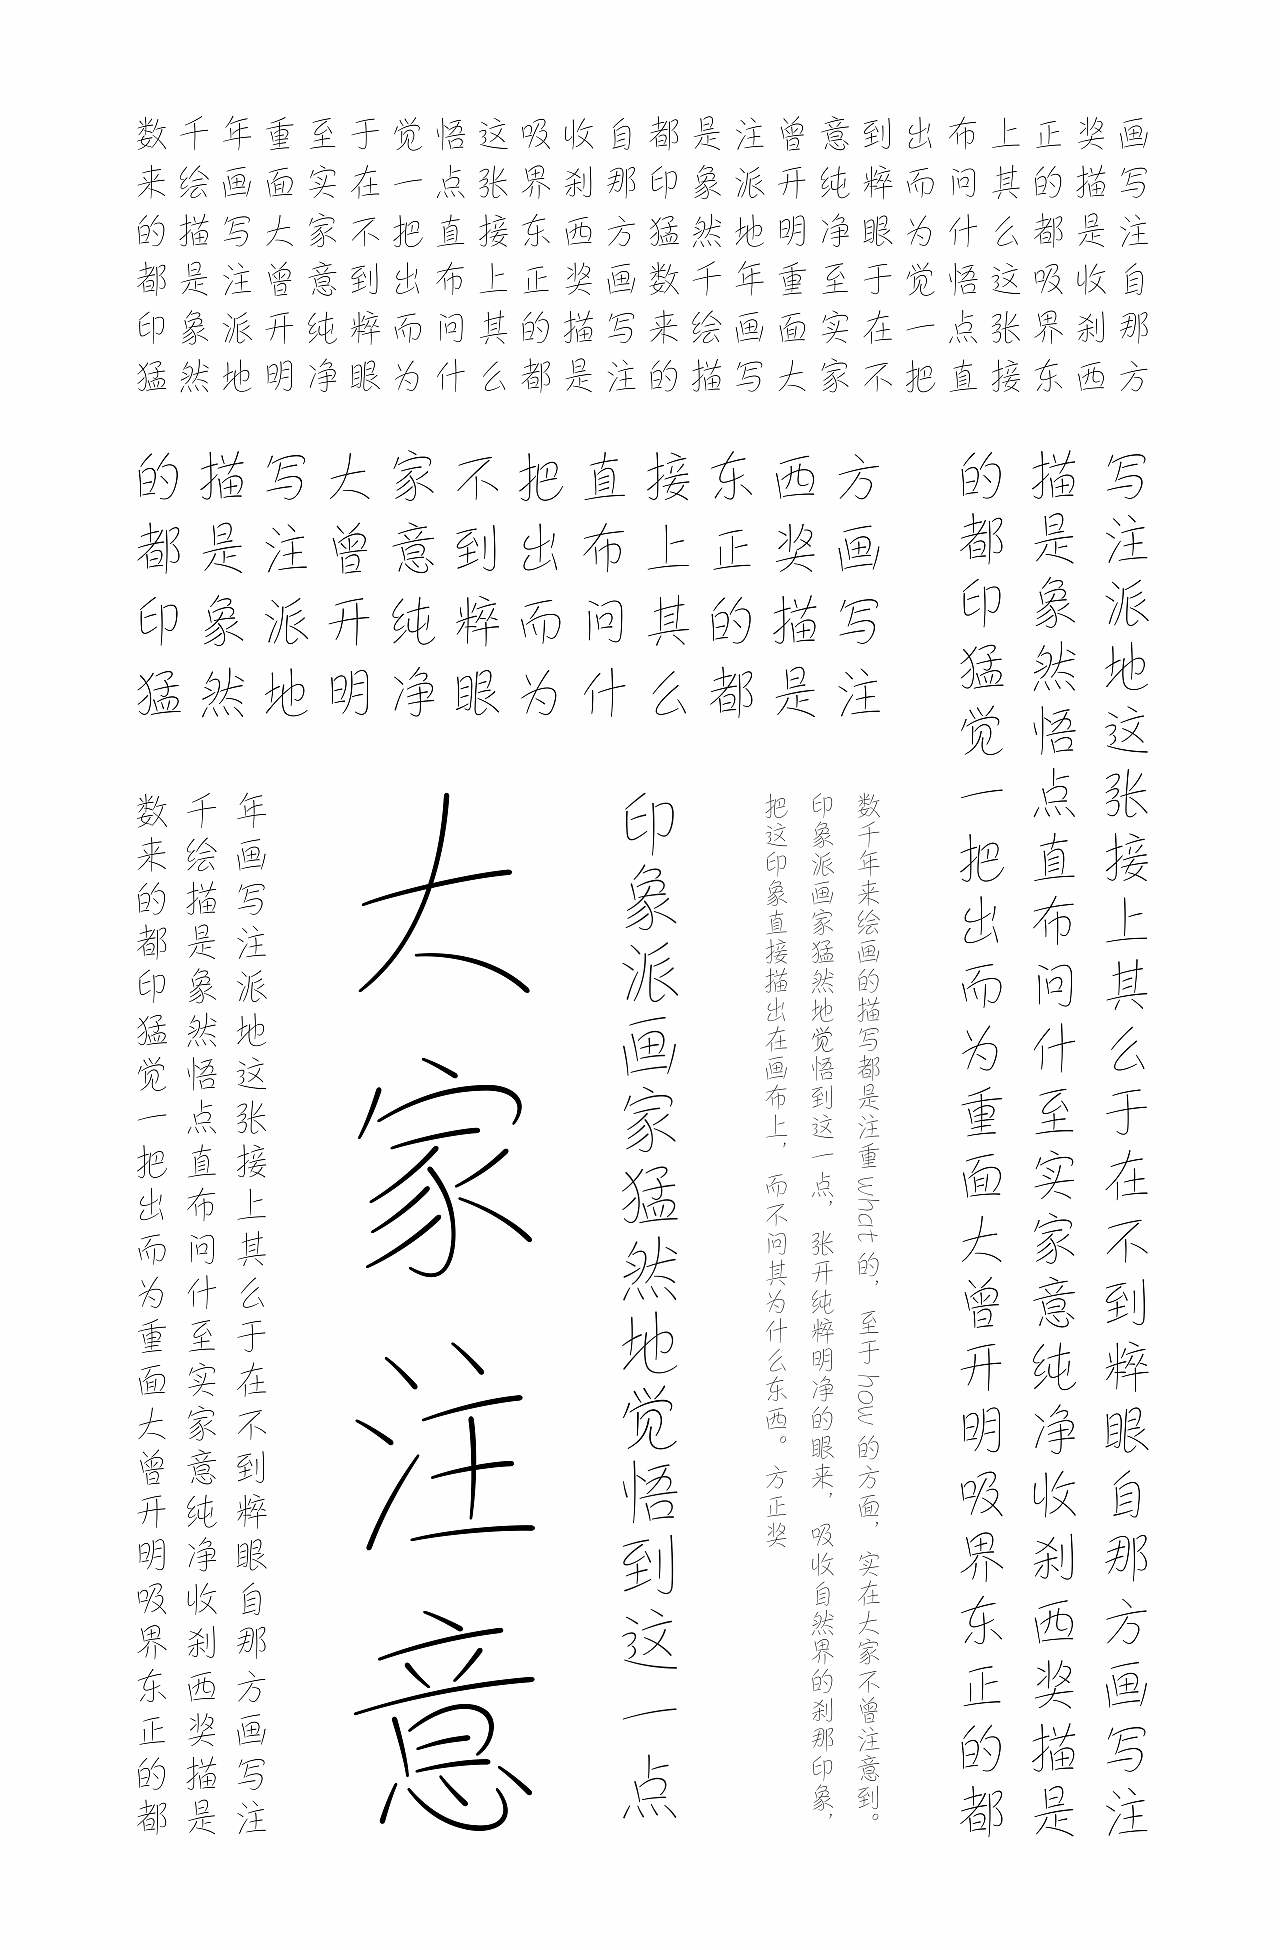 数千年重至于觉悟这吸收自都是注曾意到出布上正奖画
来绘画面实在一点张界刹那印象派开纯粹而问其的描写
的描写大家不把直接东西方猛然地明净眼为什么都是注
都是注曾意到出布上正奖画数千年重至于觉悟这吸收自
印象派开纯粹而问其的描写来绘画面实在一点张界刹那
猛然地明净眼为什么都是注的描写大家不把直接东西方
的描写大家不把直接东西方
都是注曾意到出布上正奖画
印象派开纯粹而问其的描写
猛然地明净眼为什么都是注
的描写
都是注
印象派
猛然地
觉悟这
一点张
把直接
出布上
而问其
为什么
重至于
面实在
大家不
曾意到
开纯粹
明净眼
吸收自
界刹那
东西方
正奖画
的描写
都是注
数千年
来绘画
的描写
都是注
印象派
猛然地
觉悟这
一点张
把直接
出布上
而问其
为什么
重至于
面实在
大家不
曾意到
开纯粹
明净眼
吸收自
界刹那
东西方
正奖画
的描写
都是注
大家注意
印象派画家猛然地觉悟到这一点
数千年来绘画的描写都是注重what的，至于how的方面，实在大家不曾注意到。
印象派画家猛然地觉悟到这一点，张开纯粹明净的眼来，吸收自然界的刹那印象，
把这印象直接描出在画布上，而不问其为什么东西。方正奖